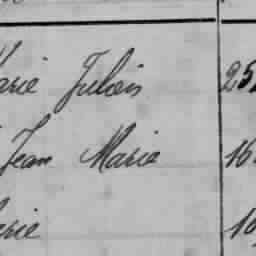 Marie Julien 25
Jean Marie 16
Marie 10